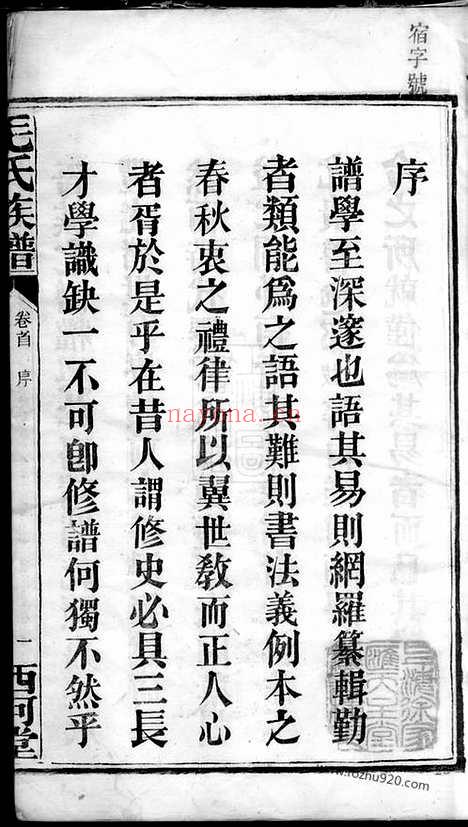 宿字號
序
譜學至深邃也語其易則網羅纂輯勤
者類能爲之語其難則書法義例本之
春秋衷之禮律所以翼世敎而正人心
者胥於是乎在昔人謂修史必具三長
才學識缺一不可卽修譜何獨不然乎
毛氏族譜
卷首 序
一
西河堂
nayona.cn
www.fozhu920.com